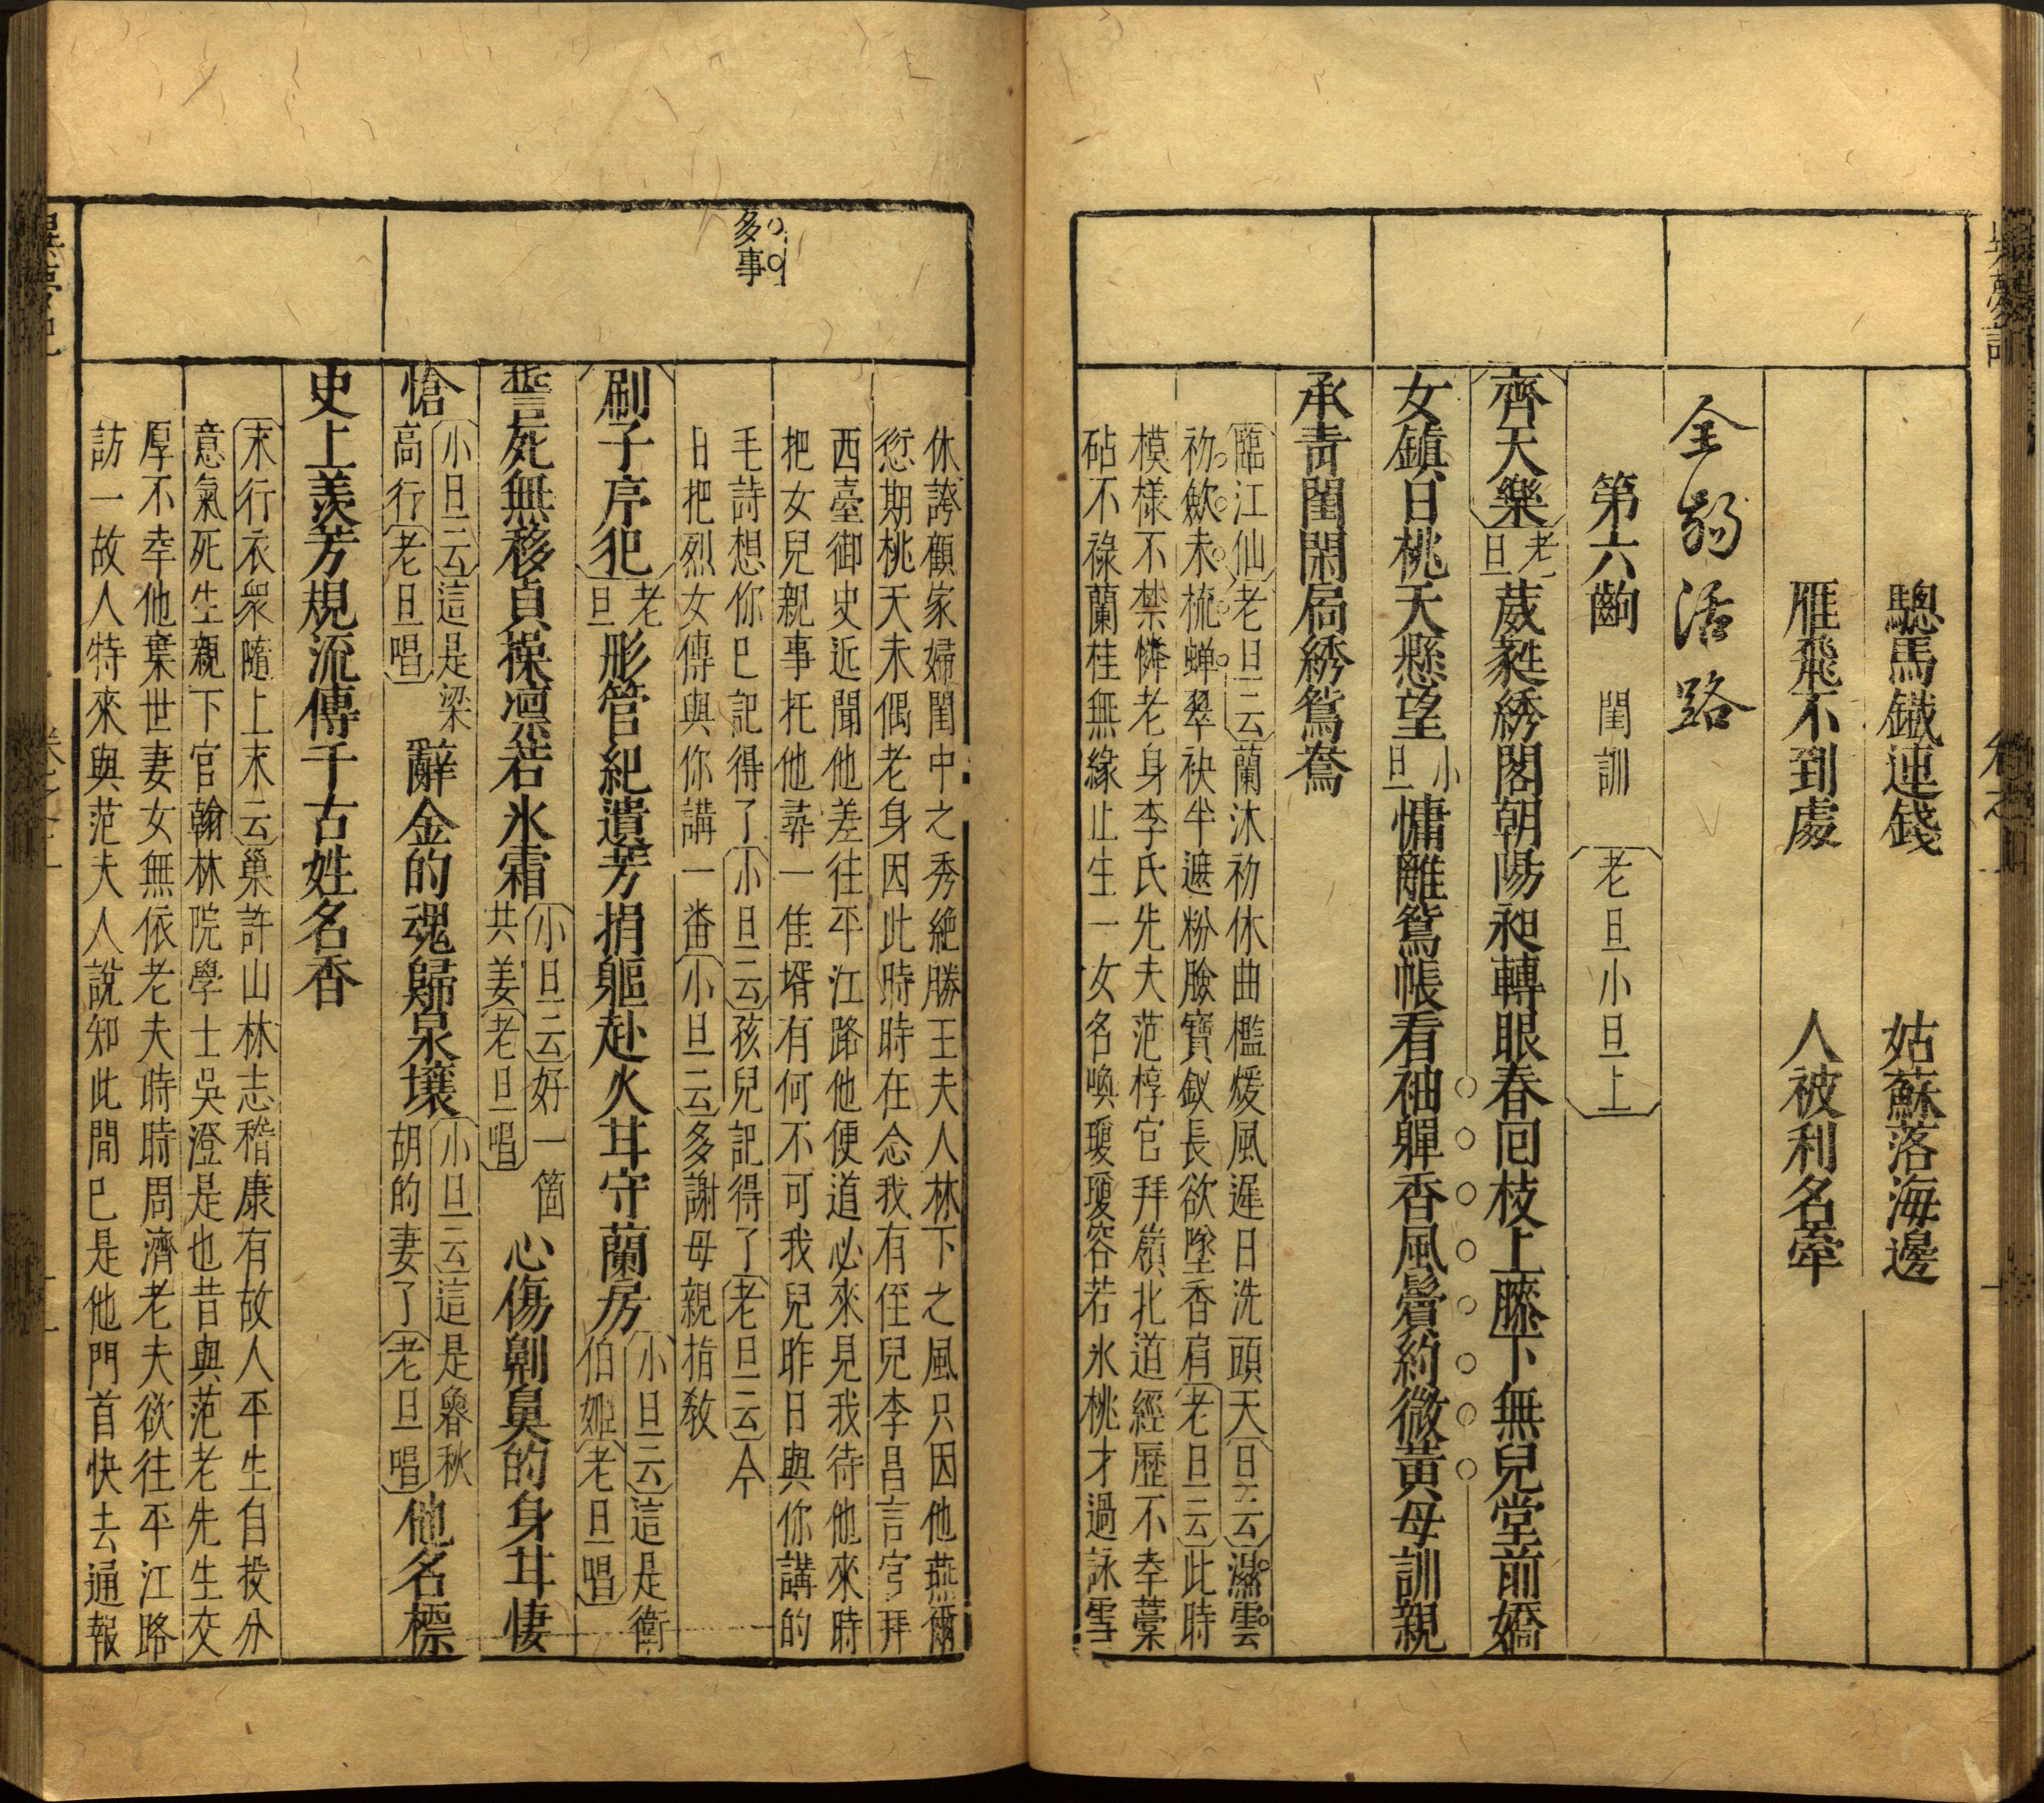 驄馬鐵連錢　姑蘇落海邊
雁飛不到處　人被利名牽
全弱活路
第六齣　閨訓　老旦小旦上
齊天樂　老旦　葳蕤綉閣朝陽昶轉眼春回枝上膝下無兒堂前嬌
女鎮日桃夭懸望　小旦　慵離鴛帳看袖嚲香風鬢約微黃母訓親
承青閨閑局綉鴛鴦
臨江仙　老旦云　蘭沐初休曲檻煖風遲日洗頭天　旦云　濕雲
初歛未梳蟬翠袂半遮粉臉寶釵長欲墜香肩　老旦云　此時
模樣不禁憐老身李氏先夫范椁官拜嶺北道經歷不幸藁
砧不祿蘭桂無緣止生一女名喚瓊瓊容若氷桃才過詠雪
休誇顧家婦閨中之秀絶勝王夫人林下之風只因他燕爾
愆期桃夭未偶老身因此時時在念我有侄兒李昌言官拜
西臺御史近聞他差往平江路他便道必來見我待他來時
把女兒親事托他尋一佳壻有何不可我兒昨日與你講的
毛詩想你已記得了　小旦云　孩兒記得了　老旦云　今
日把烈女傳與你講一番　小旦云　多謝母親指敎
多事
刷子序犯　老旦　形管紀遺芳捐軀赴火耳守蘭房　小旦云　這是衛
伯姬　老旦唱
誓死無移貞操凛若氷霜　小旦云　好一箇
共姜　老旦唱　心傷劓臭的身耳悽
愴　小旦云　這是梁
高行　老旦唱　辭金的魂歸泉壤　小旦云　這是魯秋
胡的妻了　老旦唱　他名標
史上羨芳規流傳千古姓名香
末行衣衆隨上末云　巢許山林志稽康有故人平生自投分
意氣死生親下官翰林院學士吳澄是也昔與范老先生交
厚不幸他棄世妻女無依老夫時時周濟老夫欲往平江路
訪一故人特來與范夫人說知此間已是他門首快去通報